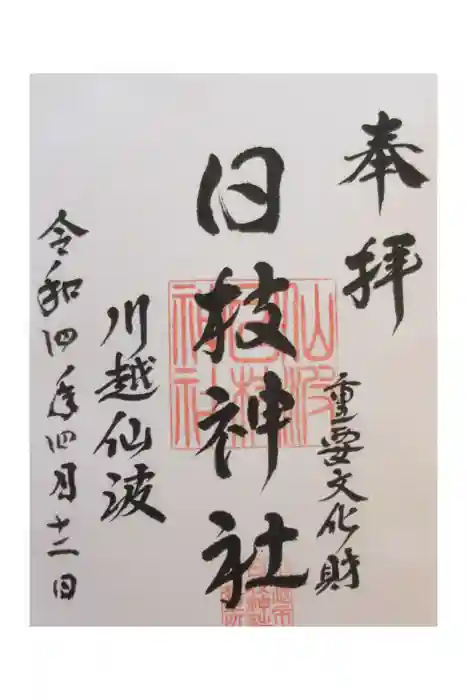 奉拝
重要文化財
日枝神社
仙波
日枝
神社
川越仙波
令和四年四月十二日